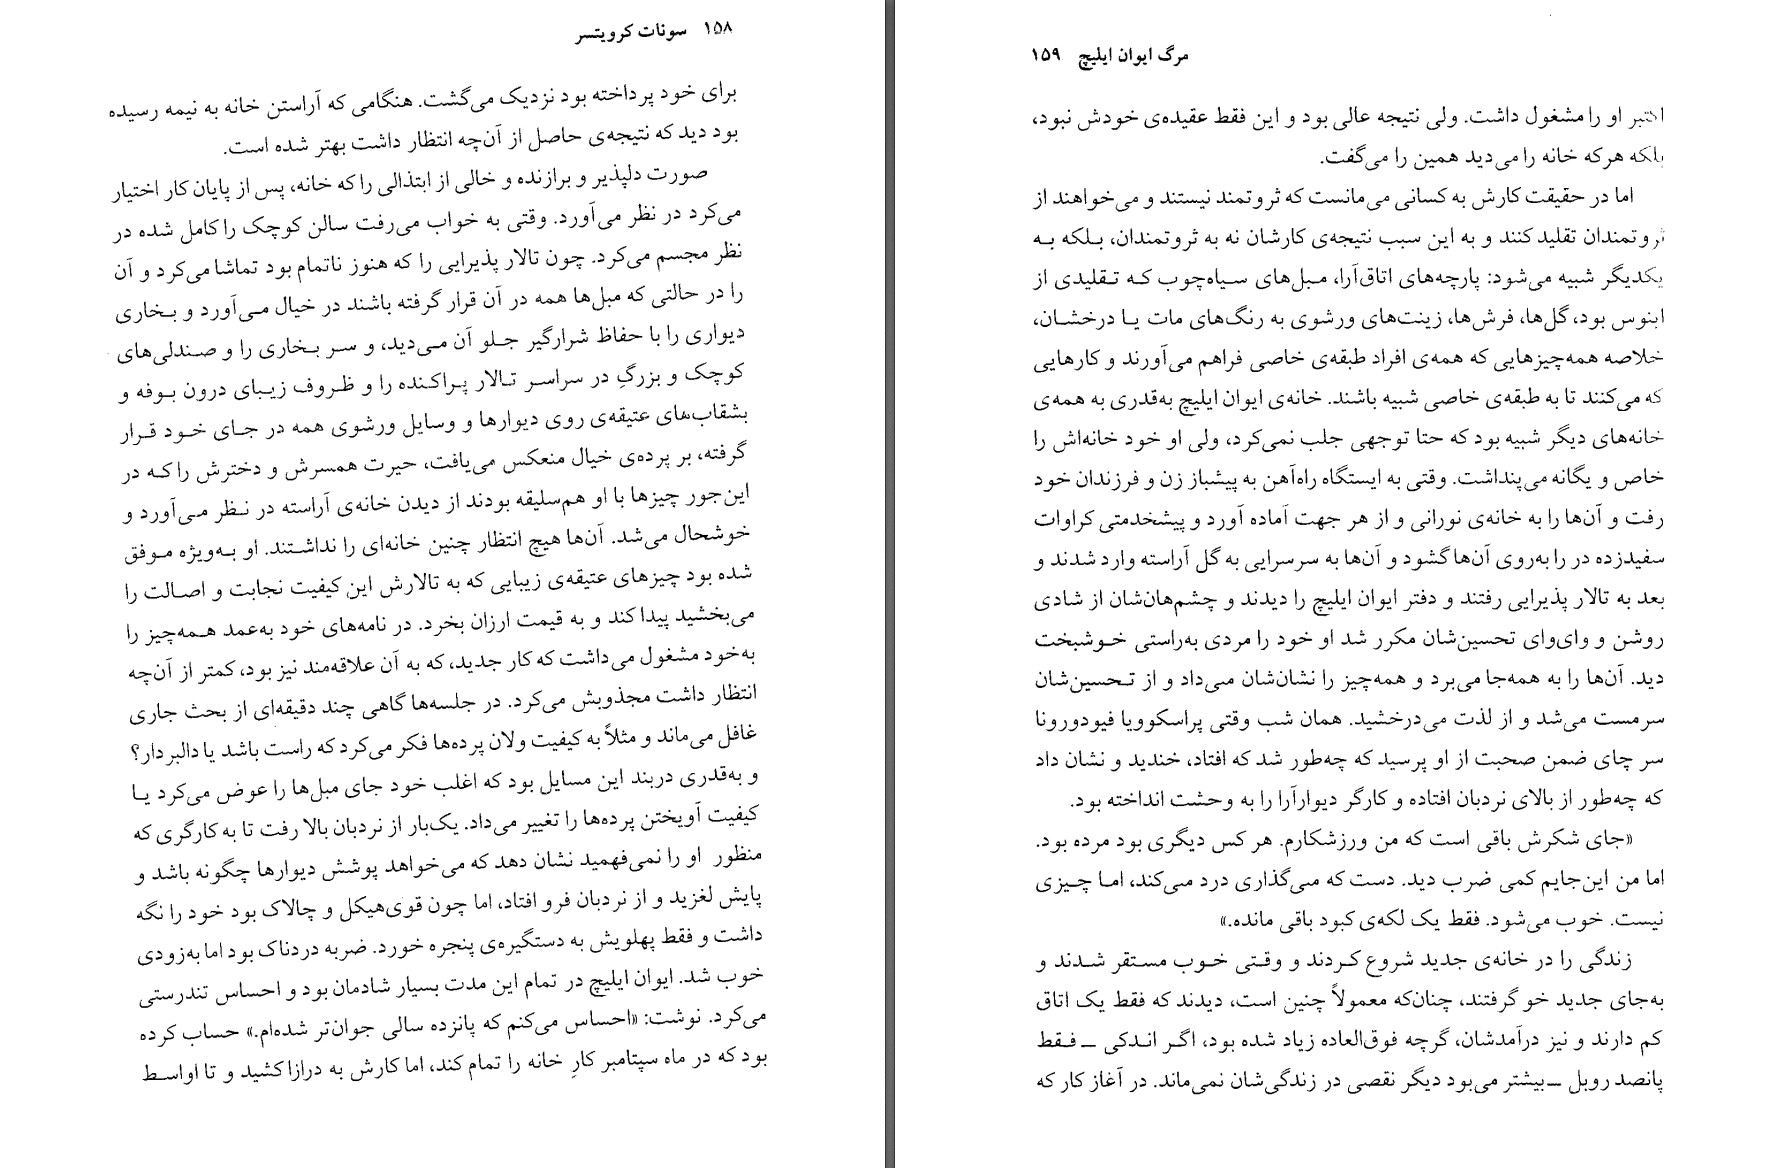 ۱۵۸ سونات کرویتسر
برای خود پرداخته بود نزدیک می‌گشت. هنگامی که آراستن خانه به نیمه رسیده
بود دید که نتیجه‌ی حاصل از آن‌چه انتظار داشت بهتر شده است.
صورت دلپذیر و برازنده و خالی از ابتذالی را که خانه، پس از پایان کار اختیار
می‌کرد در نظر می‌آورد. وقتی به خواب می‌رفت سالن کوچک را کامل شده در
نظر مجسم می‌کرد. چون تالار پذیرایی را که هنوز ناتمام بود تماشا می‌کرد و آن
را در حالتی که مبل‌ها همه در آن قرار گرفته باشند در خیال می‌آورد و بخاری
دیواری را با حفاظ شرارگیر جلو آن می‌دید، و سر بخاری را و صندلی‌های
کوچک و بزرگِ در سراسر تالار پراکنده را و ظروف زیبای درون بوفه و
بشقاب‌های عتیقه‌ی روی دیوارها و وسایل ورشوی همه در جای خود قرار
گرفته، بر پرده‌ی خیال منعکس می‌یافت، حیرت همسرش و دخترش را که در
این‌جور چیزها با او هم‌سلیقه بودند از دیدن خانه‌ی آراسته در نظر می‌آورد و
خوشحال می‌شد. آن‌ها هیچ انتظار چنین خانه‌ای را نداشتند. او به‌ویژه موفق
شده بود چیزهای عتیقه‌ی زیبایی که به تالارش این کیفیت نجابت و اصالت را
می‌بخشید پیدا کند و به قیمت ارزان بخرد. در نامه‌های خود به‌عمد همه‌چیز را
به‌خود مشغول می‌داشت که کار جدید، که به آن علاقه‌مند نیز بود، کمتر از آن‌چه
انتظار داشت مجذوبش می‌کرد. در جلسه‌ها گاهی چند دقیقه‌ای از بحث جاری
غافل می‌ماند و مثلاً به کیفیت ولان پرده‌ها فکر می‌کرد که راست باشد یا دالبردار؟
و به‌قدری دربند این مسایل بود که اغلب خود جای مبل‌ها را عوض می‌کرد یا
کیفیت آویختن پرده‌ها را تغییر می‌داد. یک‌بار از نردبان بالا رفت تا به کارگری که
منظور او را نمی‌فهمید نشان دهد که می‌خواهد پوشش دیوارها چگونه باشد و
پایش لغزید و از نردبان فرو افتاد، اما چون قوی‌هیکل و چالاک بود خود را نگه
داشت و فقط پهلویش به دستگیره‌ی پنجره خورد. ضربه دردناک بود اما به‌زودی
خوب شد. ایوان ایلیچ در تمام این مدت بسیار شادمان بود و احساس تندرستی
می‌کرد. نوشت: «احساس می‌کنم که پانزده سالی جوان‌تر شده‌ام.» حساب کرده
بود که در ماه سپتامبر کارِ خانه را تمام کند، اما کارش به درازا کشید و تا اواسط
مرگ ایوان ایلیچ ۱۵۹
اکتبر او را مشغول داشت. ولی نتیجه عالی بود و این فقط عقیده‌ی خودش نبود،
بلکه هرکه خانه را می‌دید همین را می‌گفت.
اما در حقیقت کارش به کسانی می‌مانست که ثروتمند نیستند و می‌خواهند از
ثروتمندان تقلید کنند و به این سبب نتیجه‌ی کارشان نه به ثروتمندان، بلکه به
یکدیگر شبیه می‌شود: پارچه‌های اتاق‌آرا، مبل‌های سیاه‌چوب که تقلیدی از
ابنوس بود، گل‌ها، فرش‌ها، زینت‌های ورشوی به رنگ‌های مات یا درخشان،
خلاصه همه‌چیزهایی که همه‌ی افراد طبقه‌ی خاصی فراهم می‌آورند و کارهایی
که می‌کنند تا به طبقه‌ی خاصی شبیه باشند. خانه‌ی ایوان ایلیچ به‌قدری به همه‌ی
خانه‌های دیگر شبیه بود که حتا توجهی جلب نمی‌کرد، ولی او خود خانه‌اش را
خاص و یگانه می‌پنداشت. وقتی به ایستگاه راه‌آهن به پیشباز زن و فرزندان خود
رفت و آن‌ها را به خانه‌ی نورانی و از هر جهت آماده آورد و پیشخدمتی کراوات
سفیدزده در را به‌روی آن‌ها گشود و آن‌ها به سرسرایی به گل آراسته وارد شدند و
بعد به تالار پذیرایی رفتند و دفتر ایوان ایلیچ را دیدند و چشم‌هان‌شان از شادی
روشن و وای‌وای تحسین‌شان مکرر شد او خود را مردی به‌راستی خوشبخت
دید. آن‌ها را به همه‌جا می‌برد و همه‌چیز را نشان‌شان می‌داد و از تحسین‌شان
سرمست می‌شد و از لذت می‌درخشید. همان شب وقتی پراسکوویا فیودورونا
سر چای ضمن صحبت از او پرسید که چه‌طور شد که افتاد، خندید و نشان داد
که چه‌طور از بالای نردبان افتاده و کارگر دیوارآرا را به وحشت انداخته بود.
«جای شکرش باقی است که من ورزشکارم. هر کس دیگری بود مرده بود.
اما من این‌جایم کمی ضرب دید. دست که می‌گذاری درد می‌کند، اما چیزی
نیست. خوب می‌شود. فقط یک لکه‌ی کبود باقی مانده.»
زندگی را در خانه‌ی جدید شروع کردند و وقتی خوب مستقر شدند و
به‌جای جدید خو گرفتند، چنان‌که معمولاً چنین است، دیدند که فقط یک اتاق
کم دارند و نیز درآمدشان، گرچه فوق‌العاده زیاد شده بود، اگر اندکی – فقط
پانصد روبل – بیشتر می‌بود دیگر نقصی در زندگی‌شان نمی‌ماند. در آغاز کار که